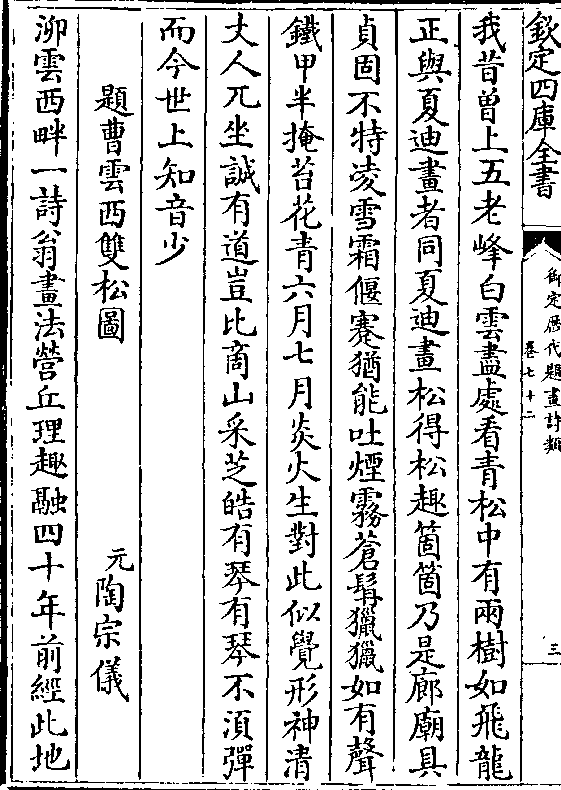 欽定四庫全書
御定歷代題畫詩類
卷七十二
三
我昔曾上五老峰白雲盡處看青松中有兩樹如飛龍
正與夏迪畫者同夏迪畫松得松趣箇箇乃是廊廟具
貞固不特凌雪霜偃蹇猶能吐煙霧蒼髯獵獵如有聲
鐵甲半掩苔花青六月七月炎火生對此似覺形神清
丈人兀坐誠有道豈比商山采芝皓有琴有琴不須彈
而今世上知音少
題曹雲西雙松圖
元陶宗儀
泖雲西畔一詩翁畫法營丘理趣融四十年前經此地